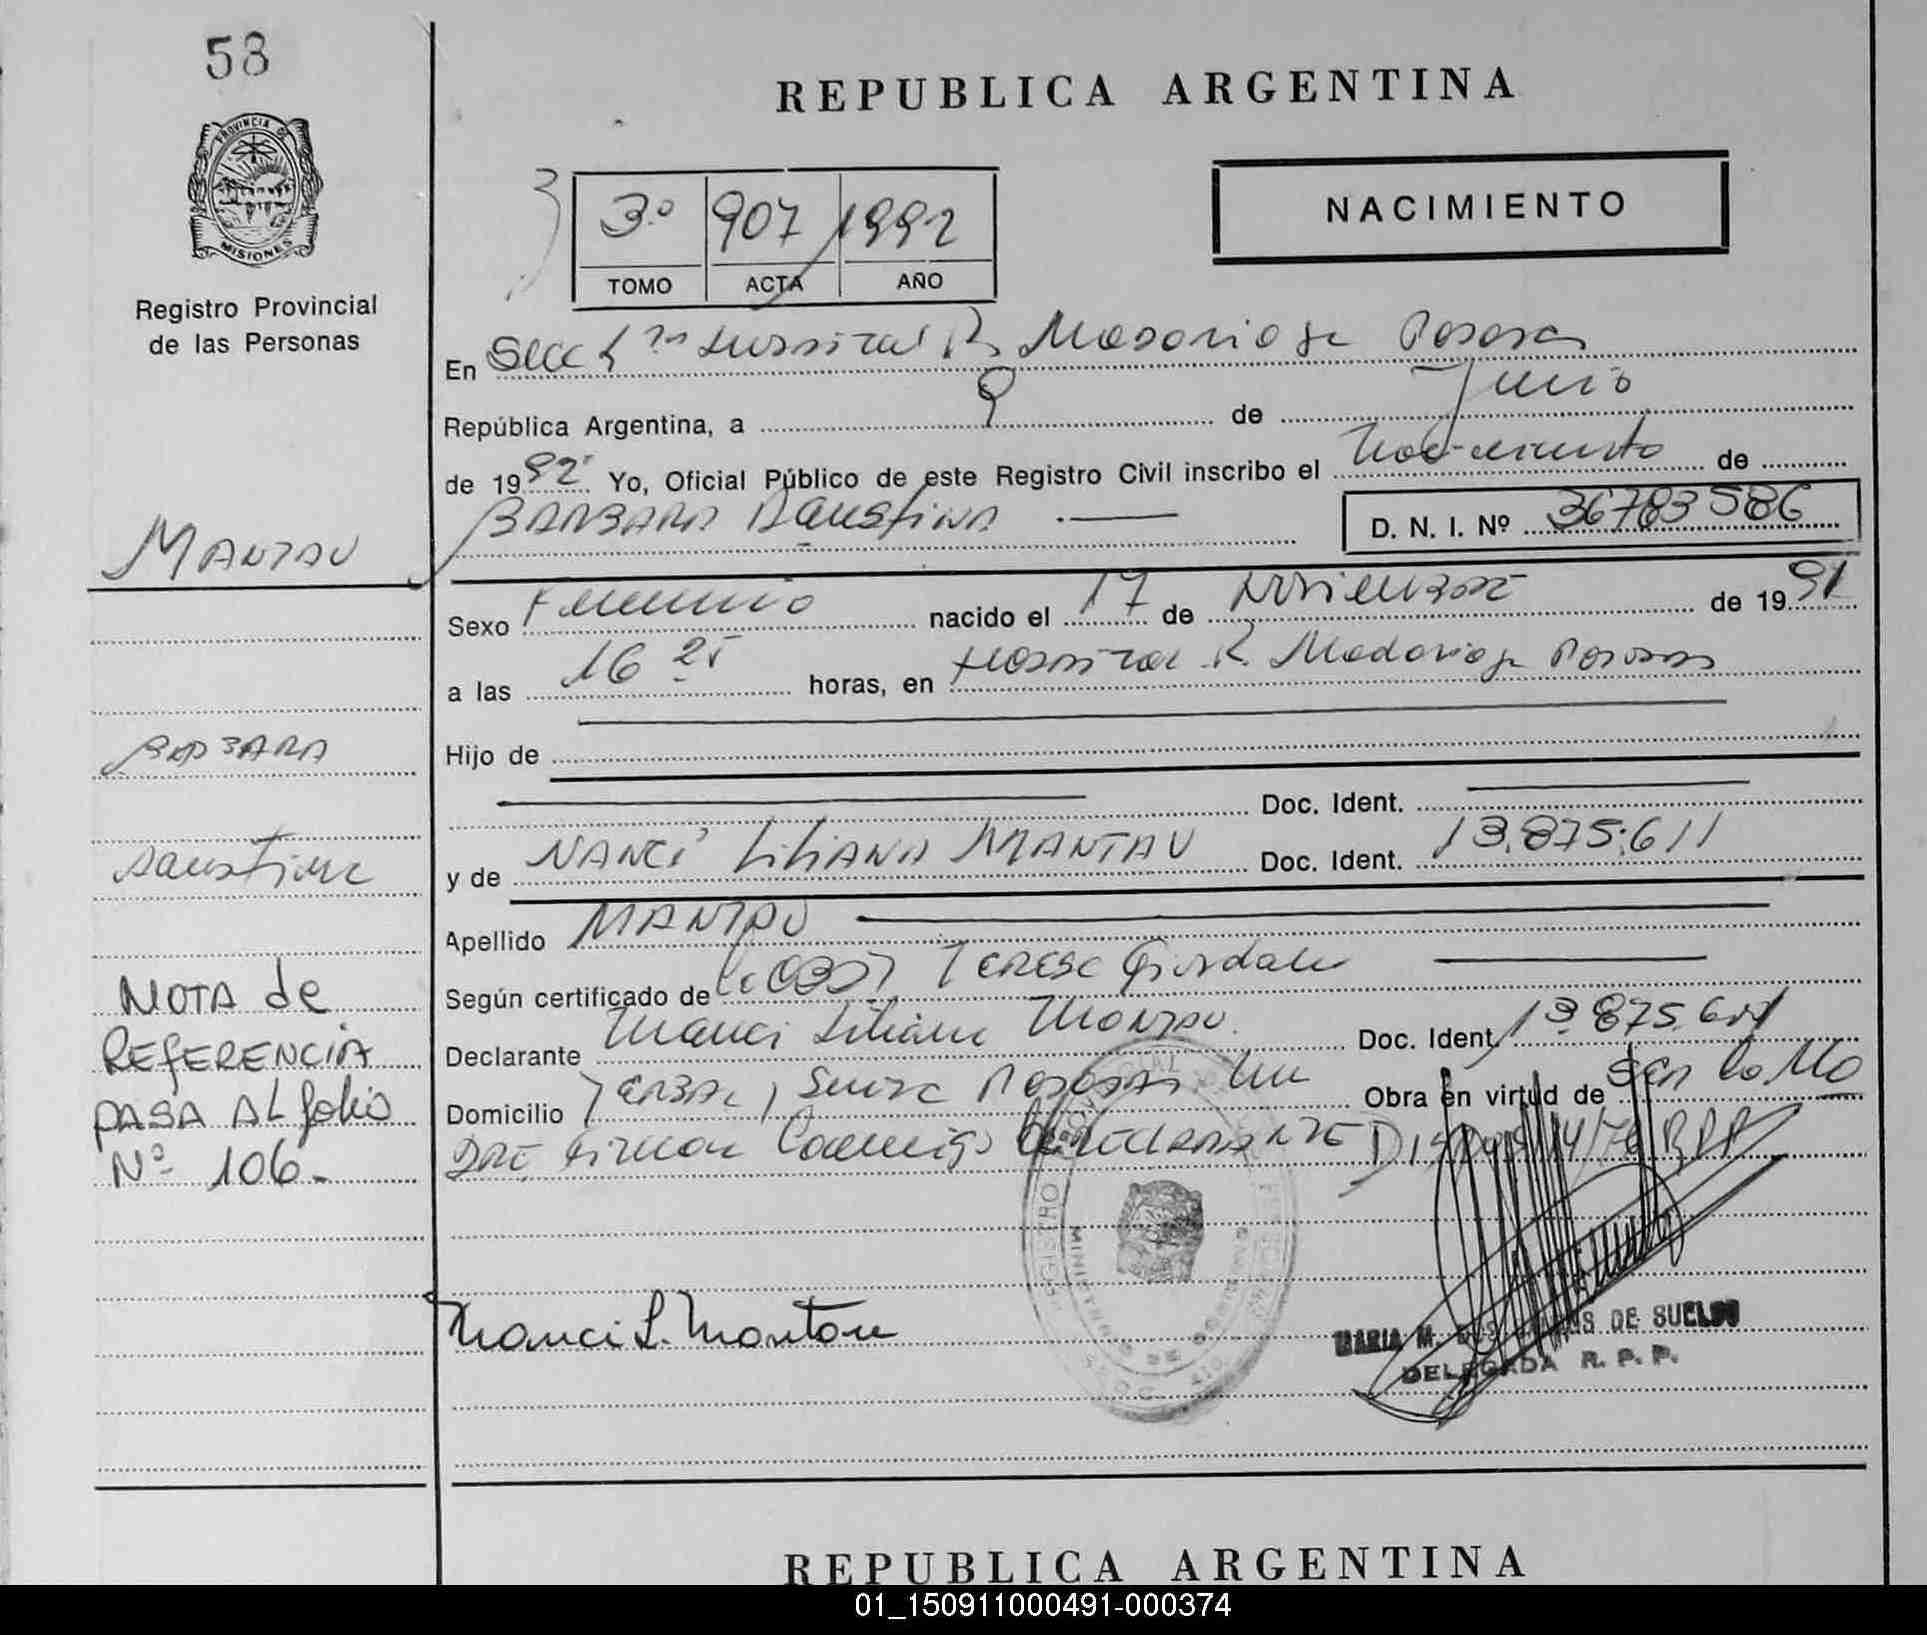 58
REPUBLICA ARGENTINA
PROVINCIA DE
MISIONES
Registro Provincial
de las Personas
3º 907 1992
TOMO ACTA AÑO
NACIMIENTO
En Secc R. Madariaga Posadas
República Argentina, a 9 de Junio
de 1992 Yo, Oficial Público de este Registro Civil inscribo el Nacimiento de
BARBARA AGUSTINA
D. N. I. Nº 36783586
MANTAU
Sexo Femenino nacido el 17 de Noviembre de 1991
a las 16 25 horas, en Hospital R. Madariaga Posadas
BARBARA
Hijo de
Doc. Ident.
Agustina
y de NANCI LILIANA MANTAU Doc. Ident. 13.875.611
Apellido MANTAU
Según certificado de Teresa
Declarante Nanci Liliana Mantau Doc. Ident. 13.875.611
Domicilio Posadas Obra en virtud de
NOTA de
REFERENCIA
PASA AL folio
Nº 106.-
firman conmigo
Nanci L. Mantau
MARIA M. DE SUELDO
DELEGADA R. P. P.
REPUBLICA ARGENTINA
01_150911000491-000374